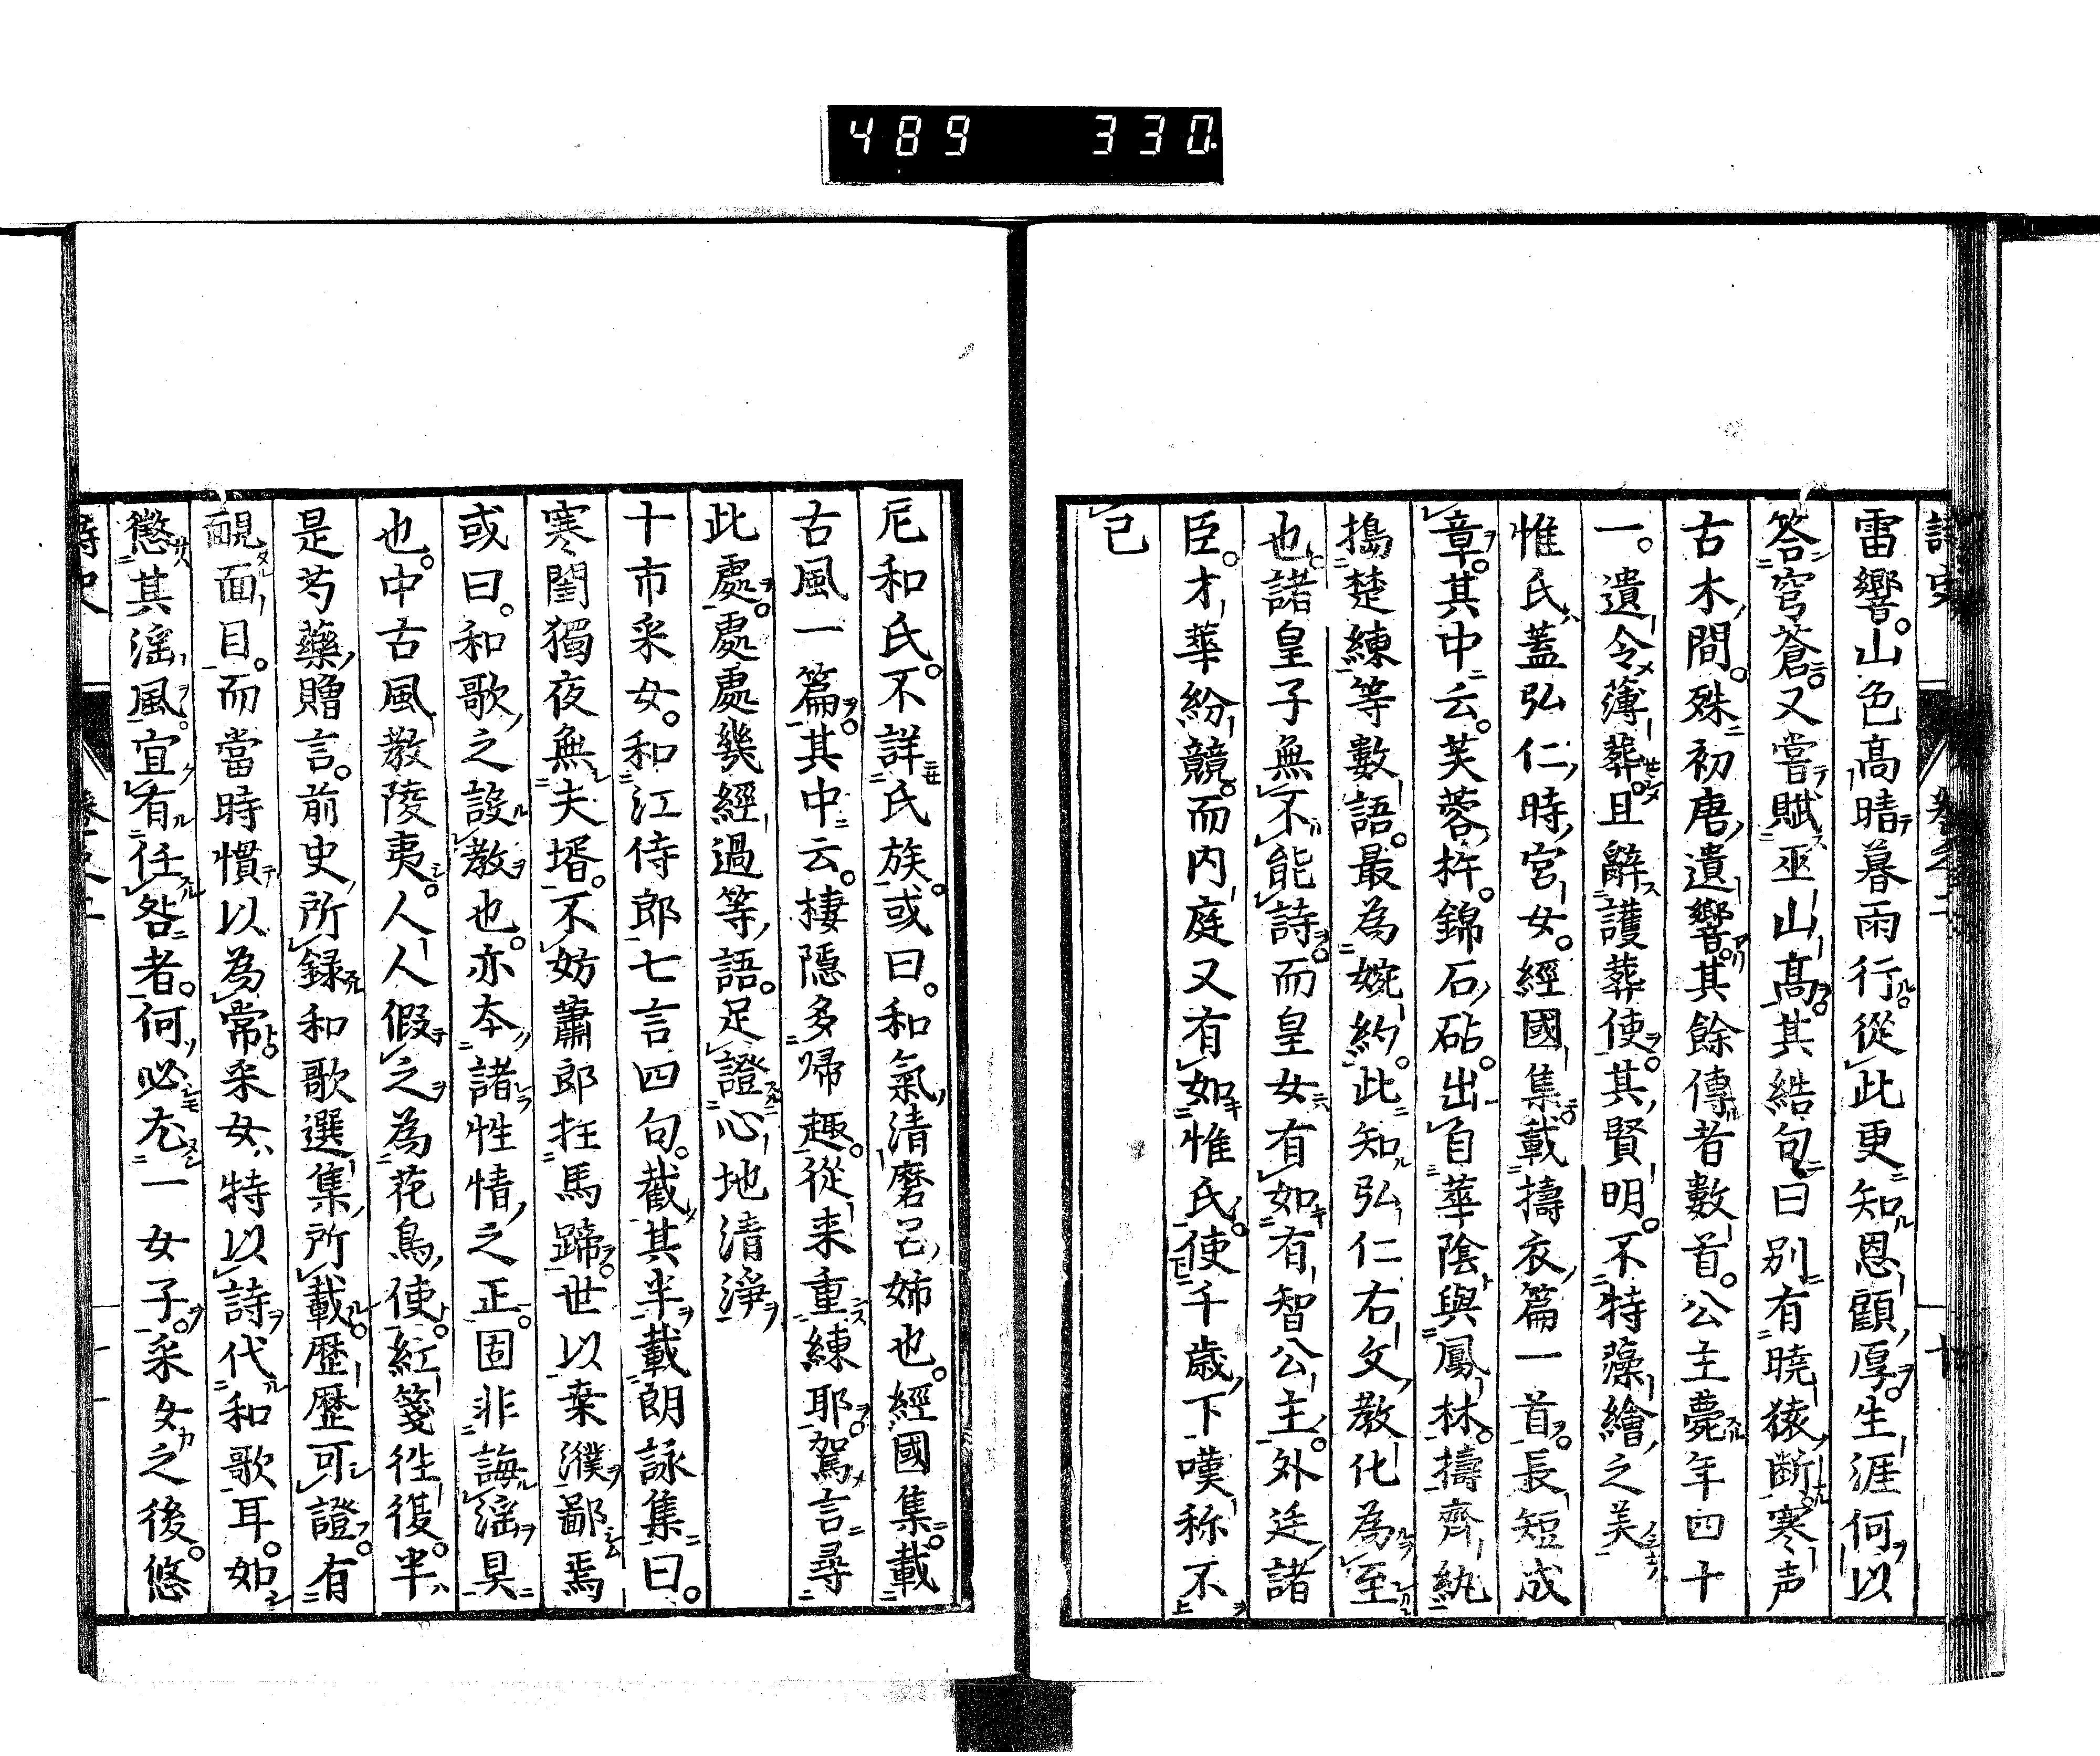 489 330
雷響。山色高晴暮雨行。從此更知恩顧厚。生涯何以
答穹蒼。又嘗賦巫山高。其結句曰別有曉猿断寒声
古木間。殊初唐遺響。其餘傳者數首。公主薨年四十
一。遺令薄葬。且辭護葬使。其賢明。不特藻繪之美
惟氏蓋弘仁時宮女。經國集載擣衣篇一首。長短成
章。其中云。芙蓉杵。錦石砧。出自華陰與鳳林。擣齊紈
搗楚練等數語。最為婉約。此知弘仁右文教化為至
也。諸皇子無不能詩。而皇女有如有智公主。外廷諸
臣。才華紛競。而内庭又有如惟氏。使千歳下嘆称不
已
尼和氏。不詳氏族。或曰。和氣清磨呂姉也。經國集載
古風一篇。其中云。棲隱多帰趣。從来重練耶。駕言尋
此處。處處幾經過等語。足證心地清淨
十市采女。和江侍郎七言四句。截其半載朗詠集曰。
寒閨獨夜無夫壻。不妨蕭郎抂馬蹄。世以桒濮鄙焉
或曰。和歌之設教也。亦本諸性情之正。固非誨淫具
也。中古風教陵夷。人人假之為花鳥使。紅箋徃復。半
是芍藥贈言。前史所録和歌選集所載歴歴可證。有
靦面目。而當時慣以為常。采女特以詩代和歌耳。如
懲其滛風。宜有任咎者。何必尤一女子。采女之後。悠